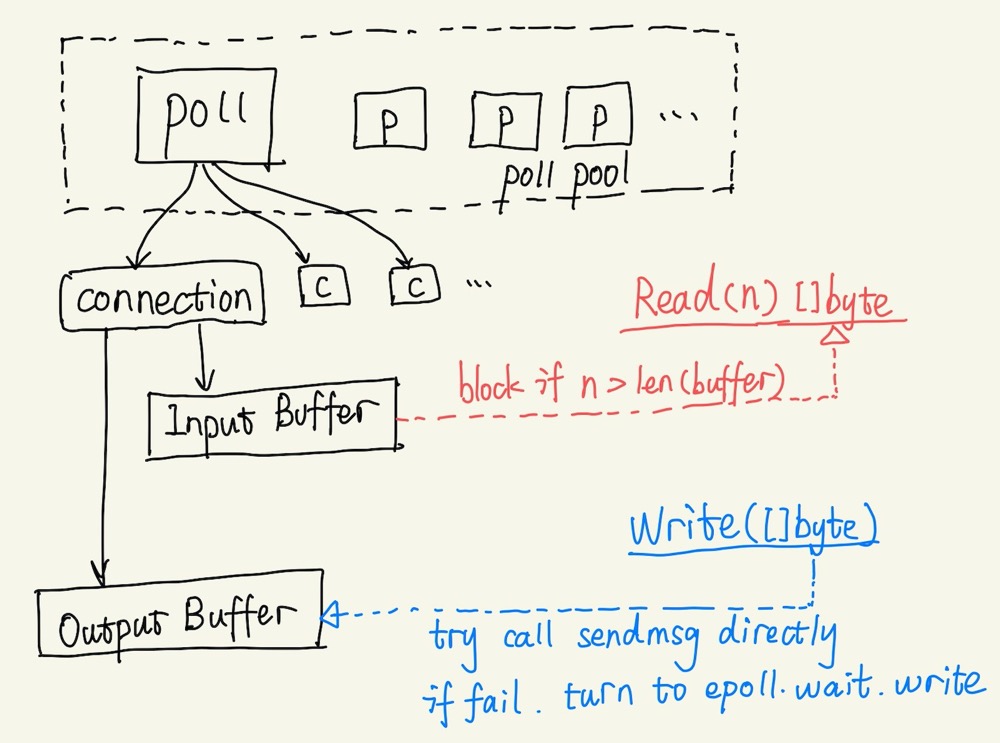 poll
p
p
p
...
poll pool
connection
c
c
...
Read(n) []byte
block if n > len(buffer)
Input Buffer
Write([]byte)
Output Buffer
try call sendmsg directly
if fail. turn to epoll.wait.write